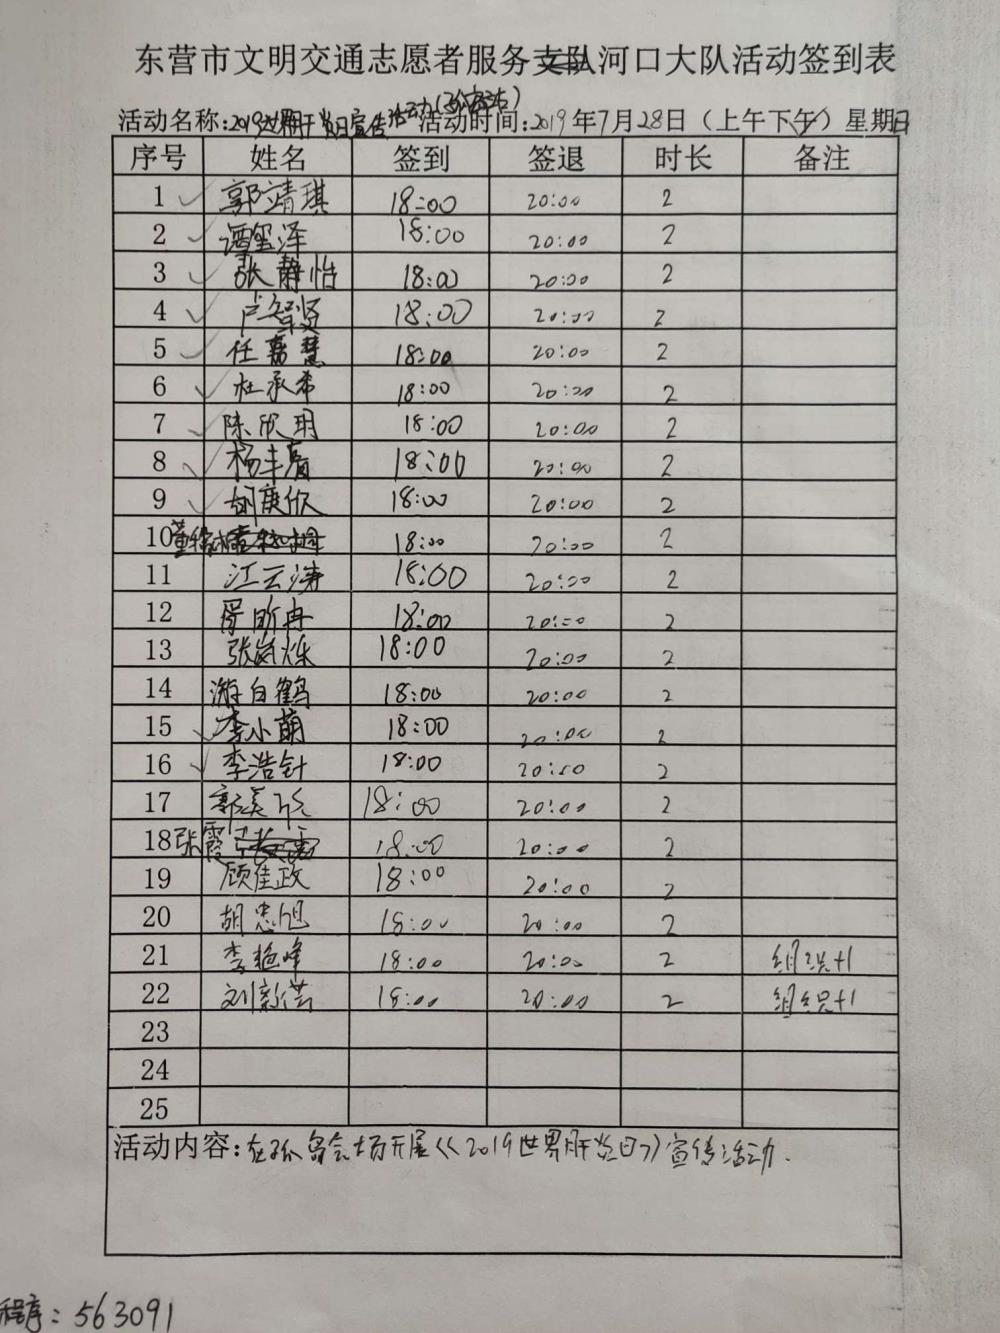 东营市文明交通志愿者服务支队河口大队活动签到表
活动名称:2019世界肝炎日宣传活动 活动时间:2019年7月28日（上午下午）星期日
序号 姓名 签到 签退 时长 备注
1 郭靖琪 18:00 20:00 2
2 谭玺泽 18:00 20:00 2
3 张静怡 18:00 20:00 2
4 卢智贤 18:00 20:00 2
5 任嘉慧 18:00 20:00 2
6 杜承希 18:00 20:00 2
7 陈欣玥 18:00 20:00 2
8 杨丰 18:00 20:00 2
9 胡庚欣 18:00 20:00 2
10 董 18:00 20:00 2
11 江云涛 18:00 20:00 2
12 胥昕冉 18:00 20:00 2
13 张岚烁 18:00 20:00 2
14 游白鹤 18:00 20:00 2
15 李小萌 18:00 20:00 2
16 李浩针 18:00 20:00 2
17 郭美 18:00 20:00 2
18 张霞 18:00 20:00 2
19 顾佳政 18:00 20:00 2
20 胡忠旭 18:00 20:00 2
21 李艳峰 18:00 20:00 2 组织+1
22 刘新芸 18:00 20:00 2 组织+1
23
24
25
活动内容:在孤岛会场开展《2019世界肝炎日》宣传活动.
程序:563091